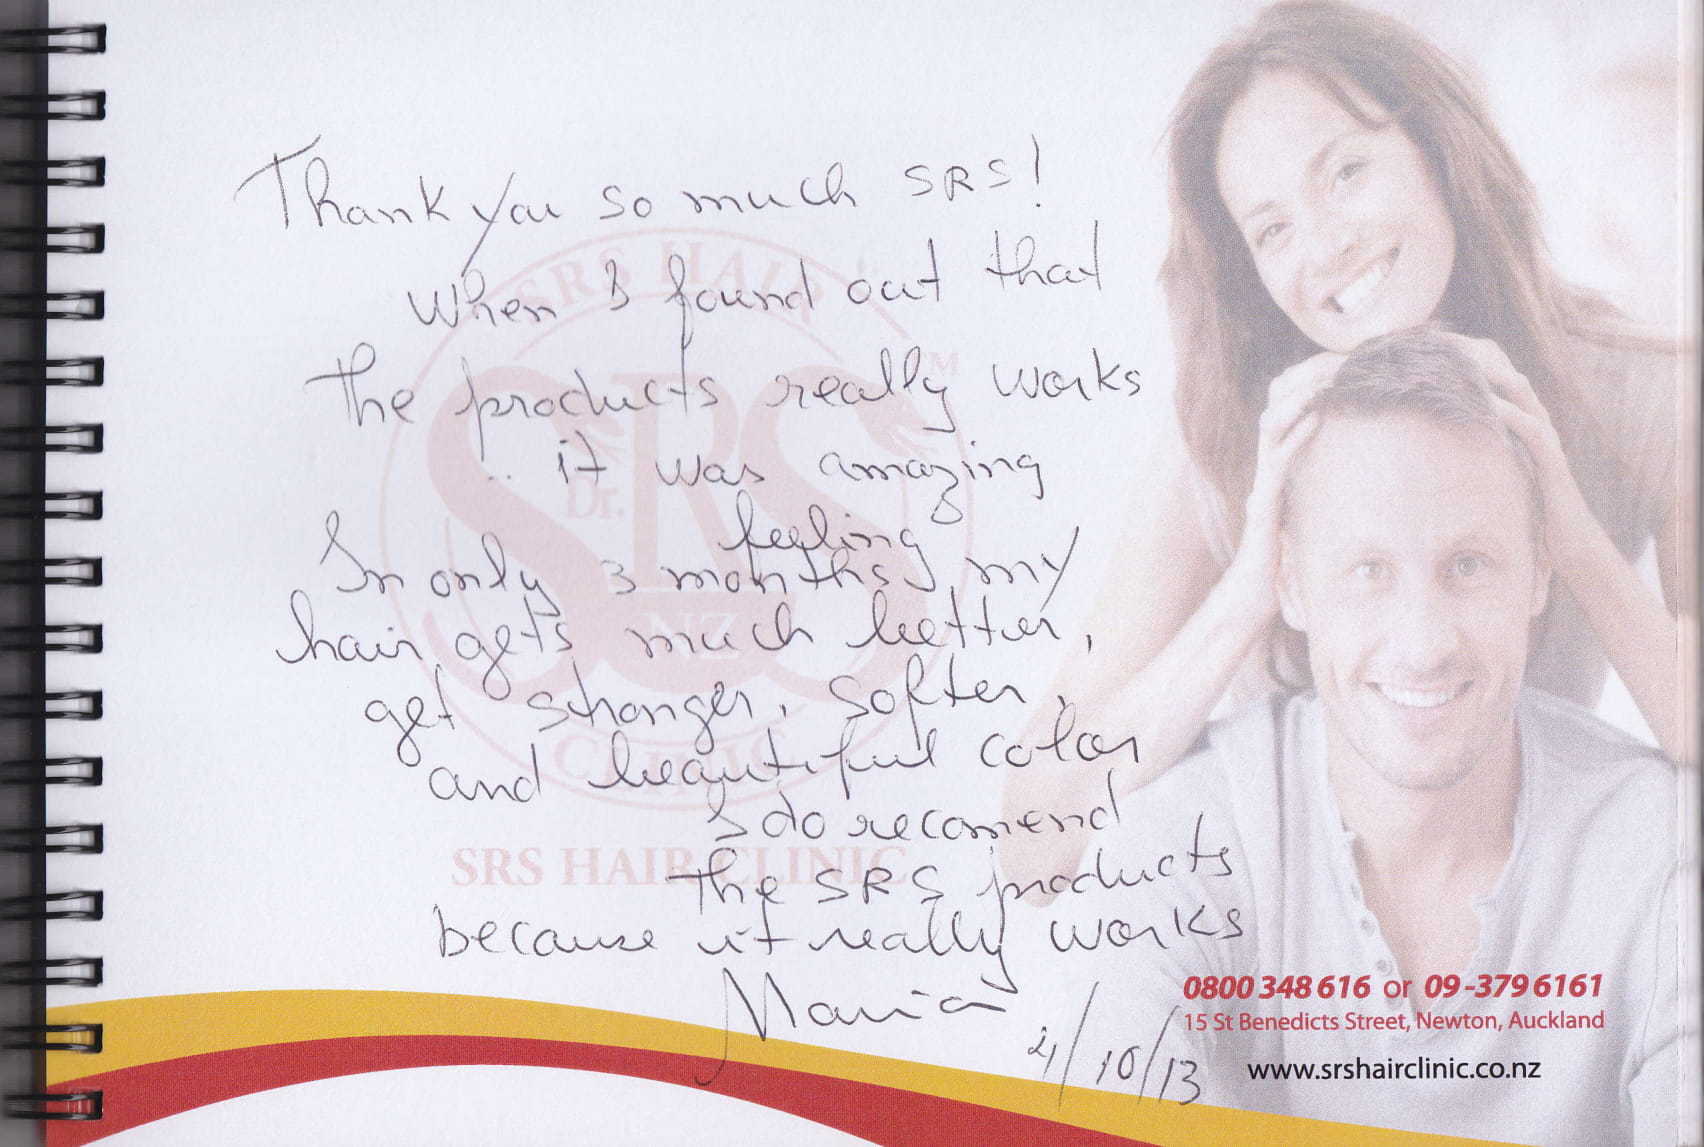 Thank you so much SRS!
When I found out that
the products really works
.. it was amazing
feeling
In only 3 months, my
hair gets much better,
get stronger, softer,
and beautiful color
I do recomend
the SRS products
because it really works
Maria
/10/13
SRS HAIR
™
SRS
Dr.
NZ
CLINIC
SRS HAIR CLINIC
0800 348 616 or 09-379 6161
15 St Benedicts Street, Newton, Auckland
www.srshairclinic.co.nz